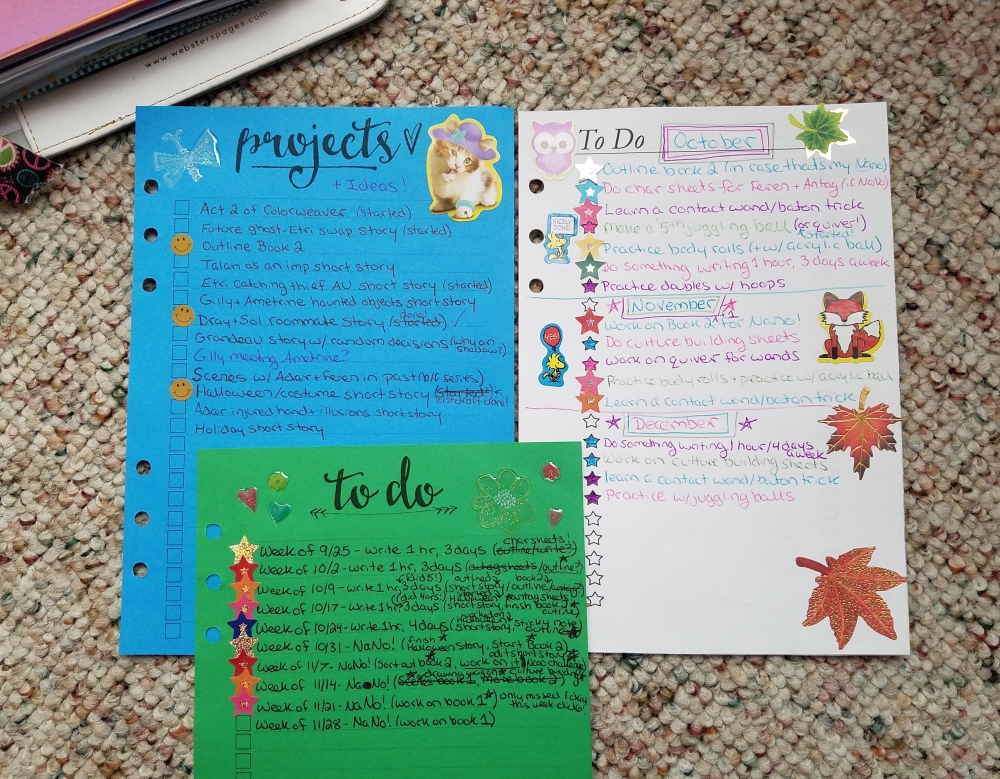 www.websterspages.com
projects
+ Ideas!
Act 2 of Colorweaver (started)
Future ghost-Etri swap story (started)
Outline Book 2
Talan as an imp short story
Etri catching thief AU short story (started)
Gilly + Ametrine haunted objects short story
done!
Dray + Sol roommate story (started) ✓
Grandeau story w/ random decisions (why on shadows?)
Gilly meeting Ametrine?
Scenes w/ Adair + Feren in past (b/c series)
Halloween/costume short story (started)
Adair injured hand + illusions short story
Holiday short story
To Do October
Outline book 2 (in case that's my Nano)
Do char sheets for Feren + Antag (ic NaNo)
Learn a contact wand/baton trick
Make a 5th juggling ball (or quiver!)
started!
Practice body rolls (+ w/ acrylic ball)
Do something writing 1 hour, 3 days a week
Practice doubles w/ hoops
NICELY DONE!
November
Work on Book 2 for Nano!
1
Do culture building sheets
work on quiver for wands
Practice body rolls + practice w/ acrylic ball
Learn a contact wand/baton trick
YES!
December
Do something writing 1 hour/4 days a week
work on culture building sheets
learn a contact wand/baton trick
Practice w/ juggling balls
to do
char sheets!
Week of 9/25 - write 1 hr, 3 days (outline/write?)
Week of 10/2 - write 1 hr, 3 days (antag sheets/outline?)
(did 5!) outlined book 2
Week of 10/9 - write 1 hr, 3 days (short story/outline/antag)
Week of 10/17 - write 1 hr, 3 days (short story, finish book 2 outline)
Week of 10/24 - Write 1 hr, 4 days (short story, sticky note outline)
Week of 10/31 - NaNo! (finish Halloween story, start Book 2)
edit short story
Week of 11/7 - NaNo! (Sort out book 2, work on it, Nano challenge)
drawing weapon culture building
Week of 11/14 - NaNo! (Scenes book 1, More book 2)
Week of 11/21 - NaNo! (work on book 1) only missed 1 day this week
Week of 11/28 - NaNo! (work on book 1)